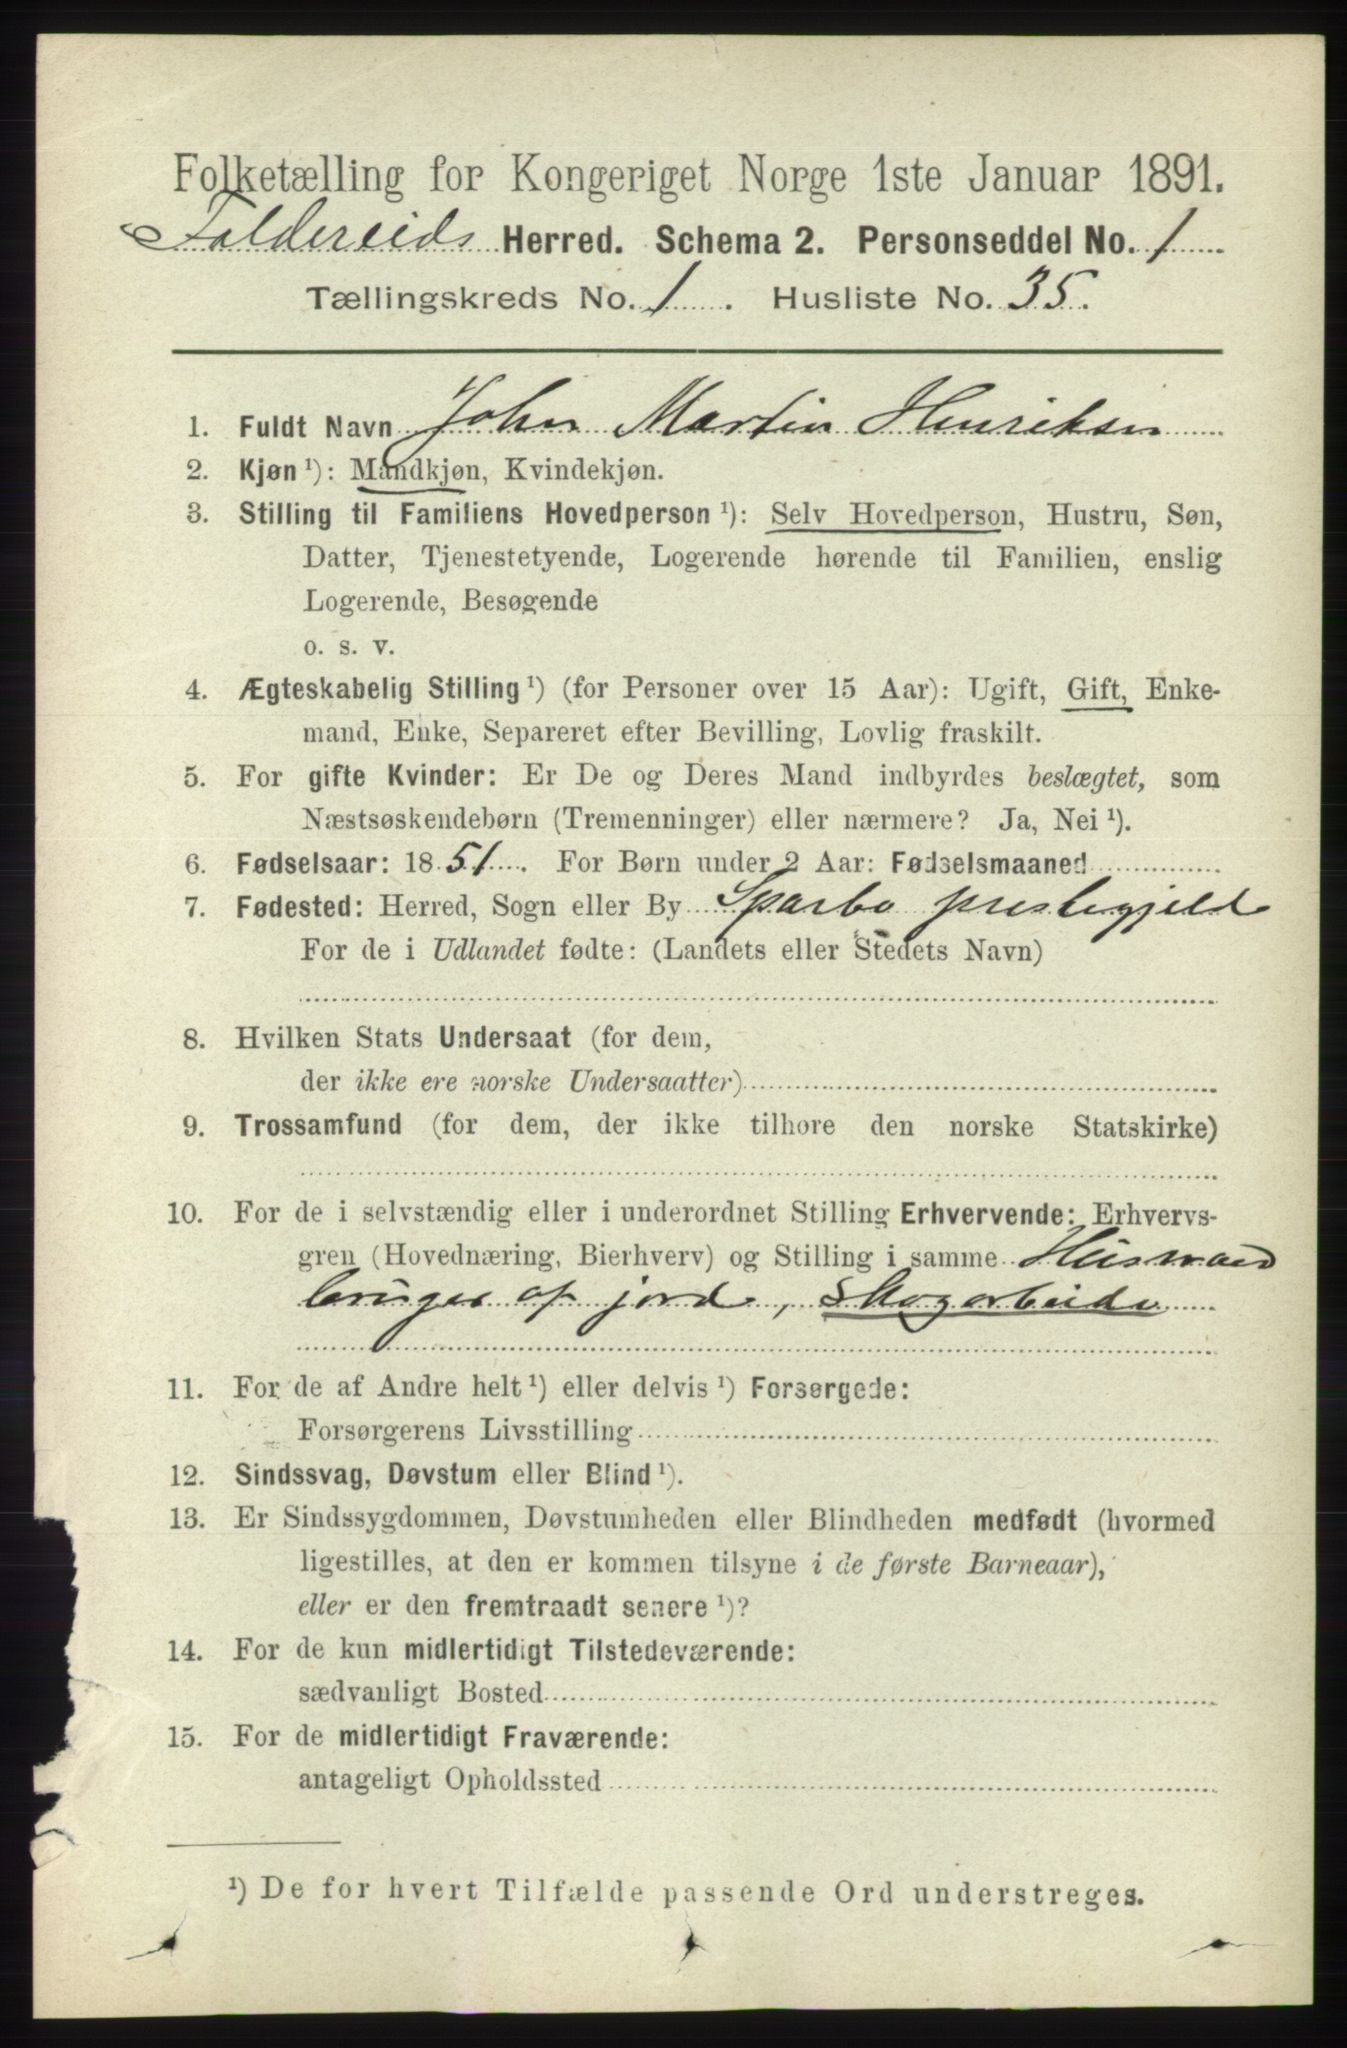 Folketælling for Kongeriget Norge 1ste Januar 1891.
Foldereids Herred. Schema 2. Personseddel No. 1
Tællingskreds No. 1. Husliste No. 35.
1. Fuldt Navn John Martin Henriksen
2. Kjøn ¹): Mandkjøn, Kvindekjøn.
3. Stilling til Familiens Hovedperson ¹): Selv Hovedperson, Hustru, Søn,
Datter, Tjenestetyende, Logerende hørende til Familien, enslig
Logerende, Besøgende
o. s. v.
4. Ægteskabelig Stilling ¹) (for Personer over 15 Aar): Ugift, Gift, Enke-
mand, Enke, Separeret efter Bevilling, Lovlig fraskilt.
5. For gifte Kvinder: Er De og Deres Mand indbyrdes beslægtet, som
Næstsøskendebørn (Tremenninger) eller nærmere? Ja, Nei ¹).
6. Fødselsaar: 1851. For Børn under 2 Aar: Fødselsmaaned
7. Fødested: Herred, Sogn eller By Sparbo prestegjeld
For de i Udlandet fødte: (Landets eller Stedets Navn)
8. Hvilken Stats Undersaat (for dem,
der ikke ere norske Undersaatter)
9. Trossamfund (for dem, der ikke tilhøre den norske Statskirke)
10. For de i selvstændig eller i underordnet Stilling Erhvervende: Erhvervs-
gren (Hovednæring, Bierhverv) og Stilling i samme Husmand
bruger af jord, Skogarbeide
11. For de af Andre helt ¹) eller delvis ¹) Forsørgede:
Forsørgerens Livsstilling
12. Sindssvag, Døvstum eller Blind ¹).
13. Er Sindssygdommen, Døvstumheden eller Blindheden medfødt (hvormed
ligestilles, at den er kommen tilsyne i de første Barneaar),
eller er den fremtraadt senere ¹)?
14. For de kun midlertidigt Tilstedeværende:
sædvanligt Bosted
15. For de midlertidigt Fraværende:
antageligt Opholdssted
¹) De for hvert Tilfælde passende Ord understreges.